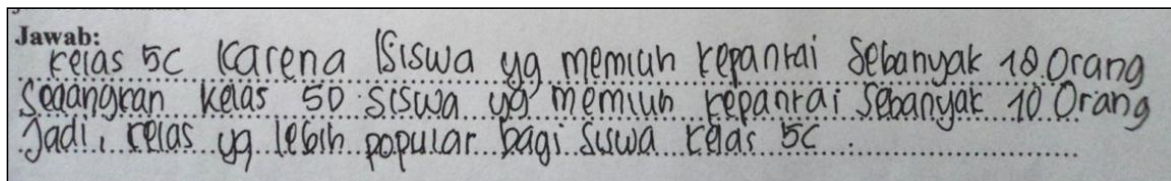 Jawab:
Kelas 5C Karena Siswa yg memilih kepantai Sebanyak 18 Orang
Sedangkan Kelas 5D Siswa yg memilih kepantai Sebanyak 10 Orang
Jadi, kelas yg lebih popular bagi siswa kelas 5C.